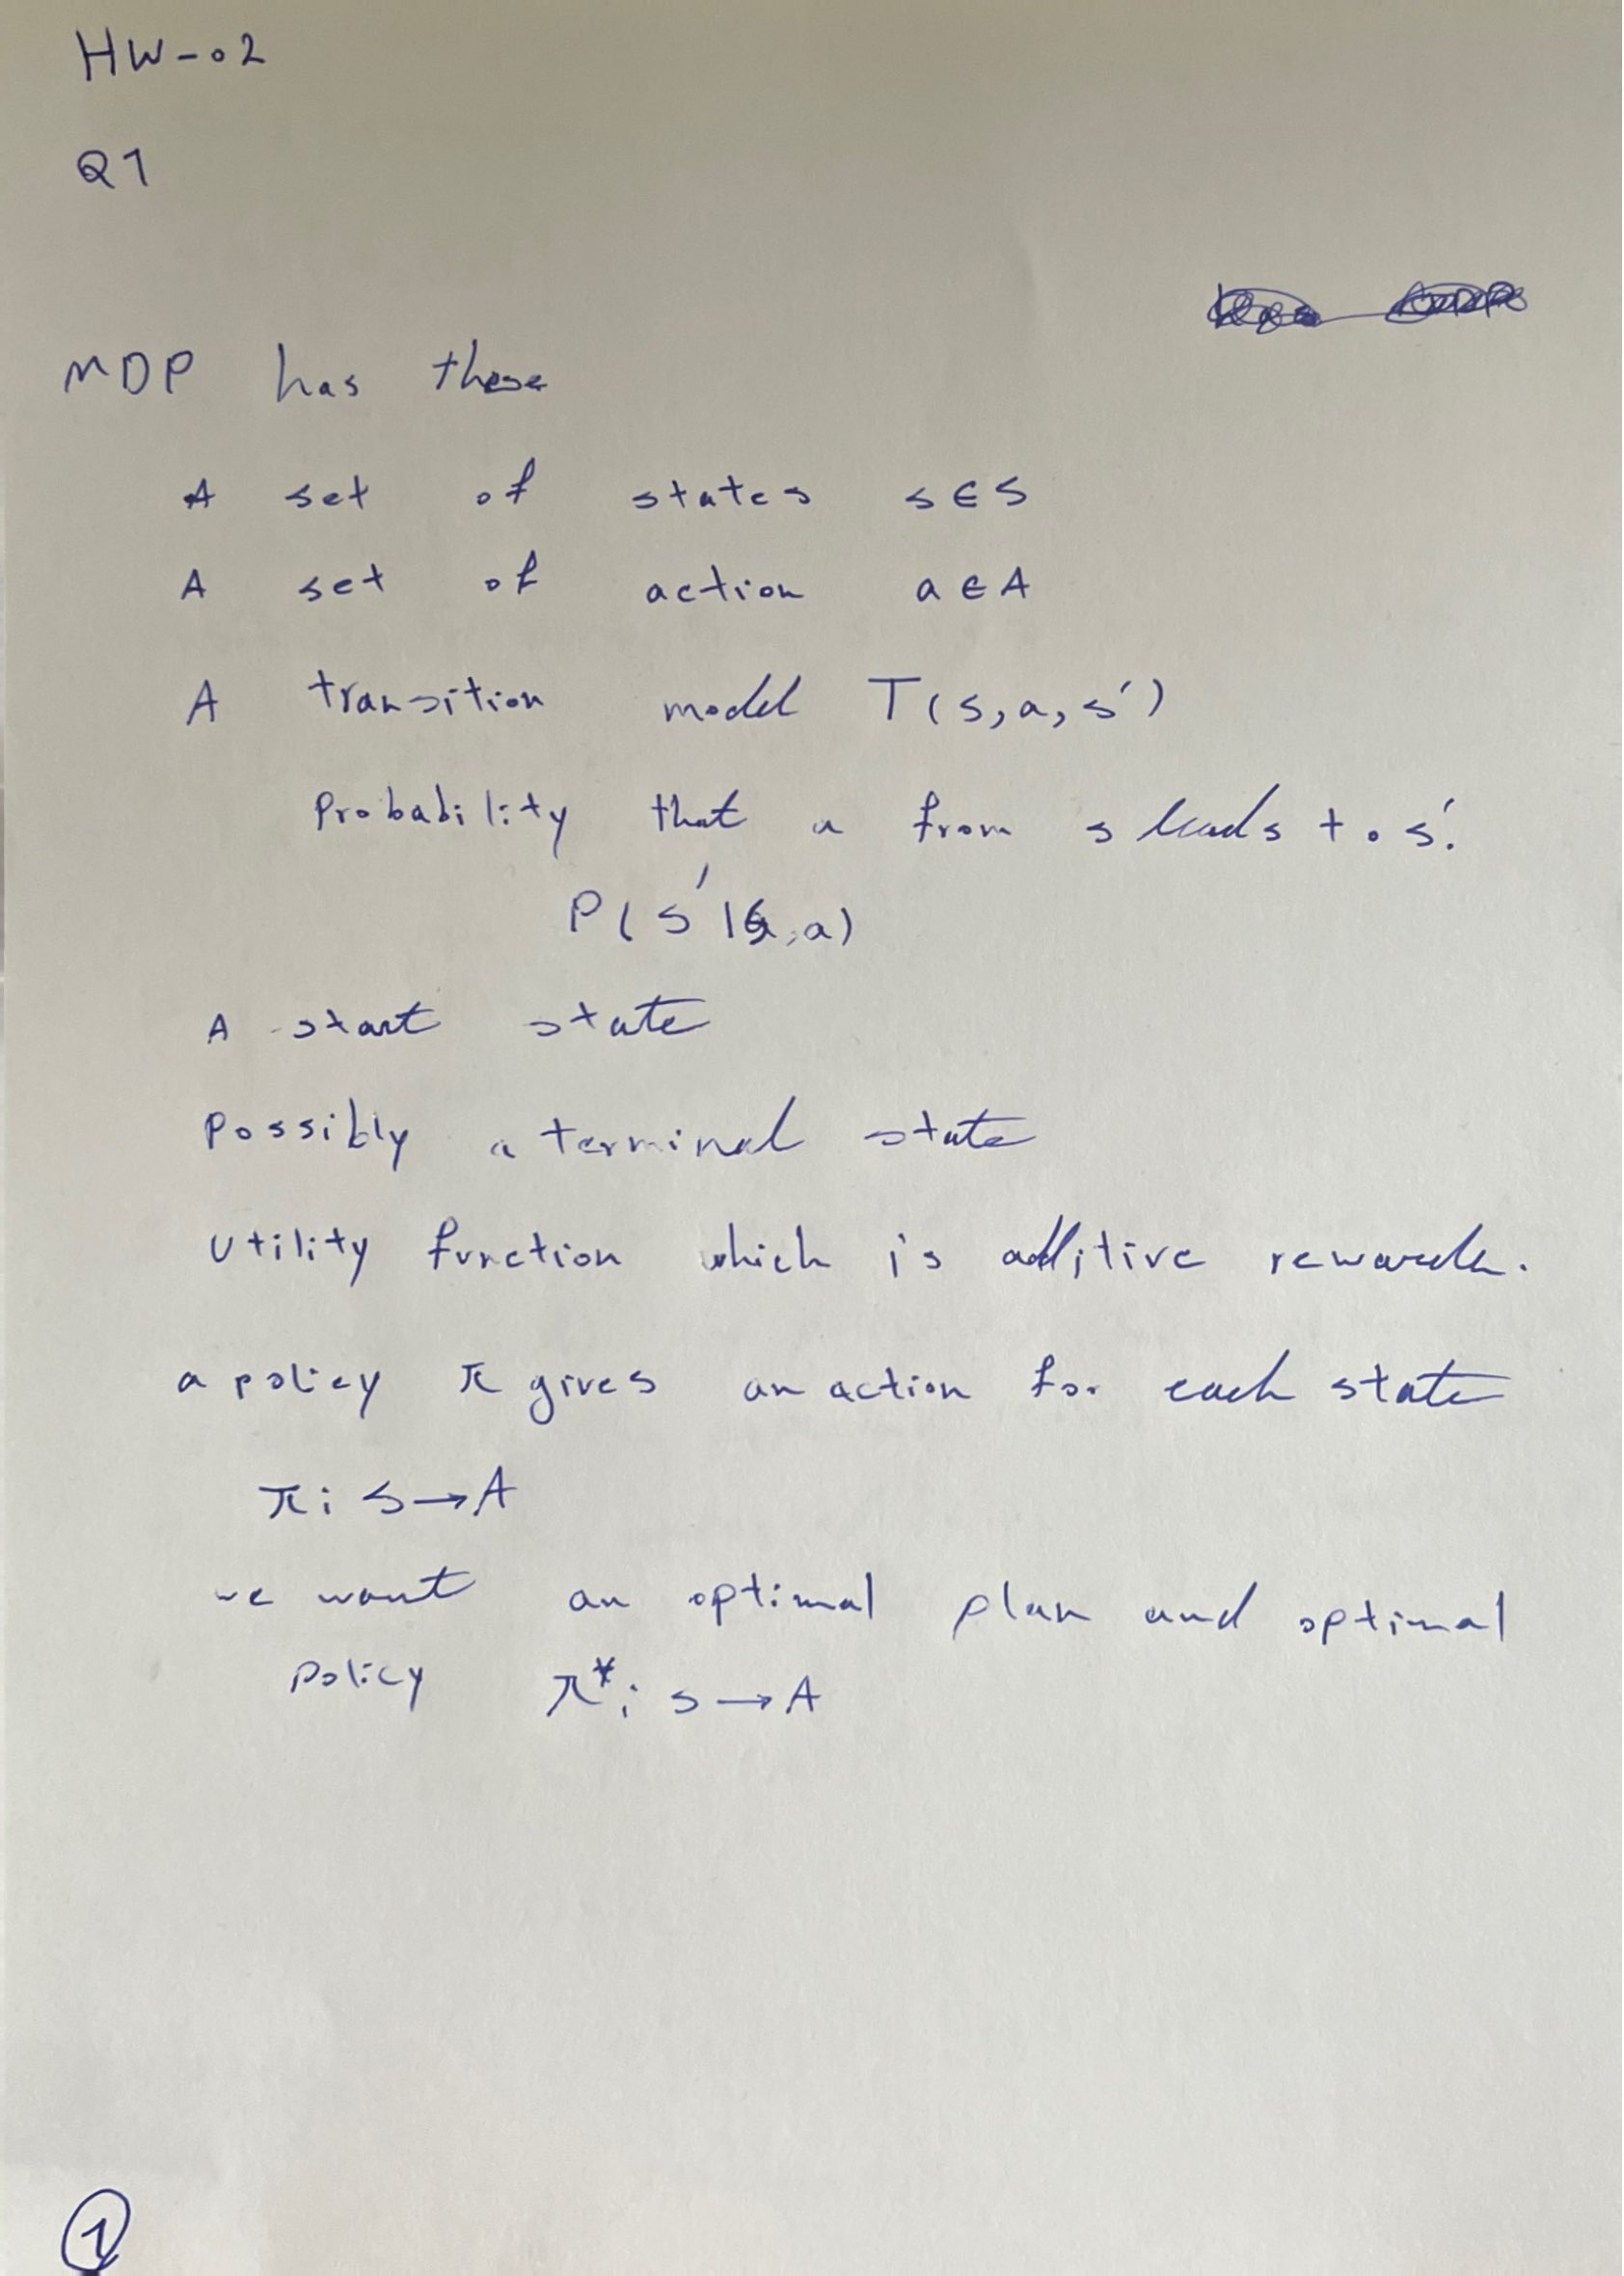 HW-02
Q1
MDP has these
A set of states s∈S
A set of action a∈A
A transition model T(s,a,s')
Probability that a from s leads to s'.
P(s'|s,a)
A start state
Possibly a terminal state
Utility function which is additive rewards.
a policy π gives an action for each state
π: S→A
we want an optimal plan and optimal
policy π*: S→A
1